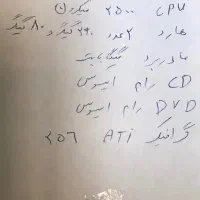 CPU ۲۵۰۰ میکرون
هارد ۲ عدد ۲۹۰ گیگ و ۸۰ گیگ
مادربرد گیگابایت
CD رام ایسوس
DVD رام ایسوس
گرافیک ATi ۲۵۶